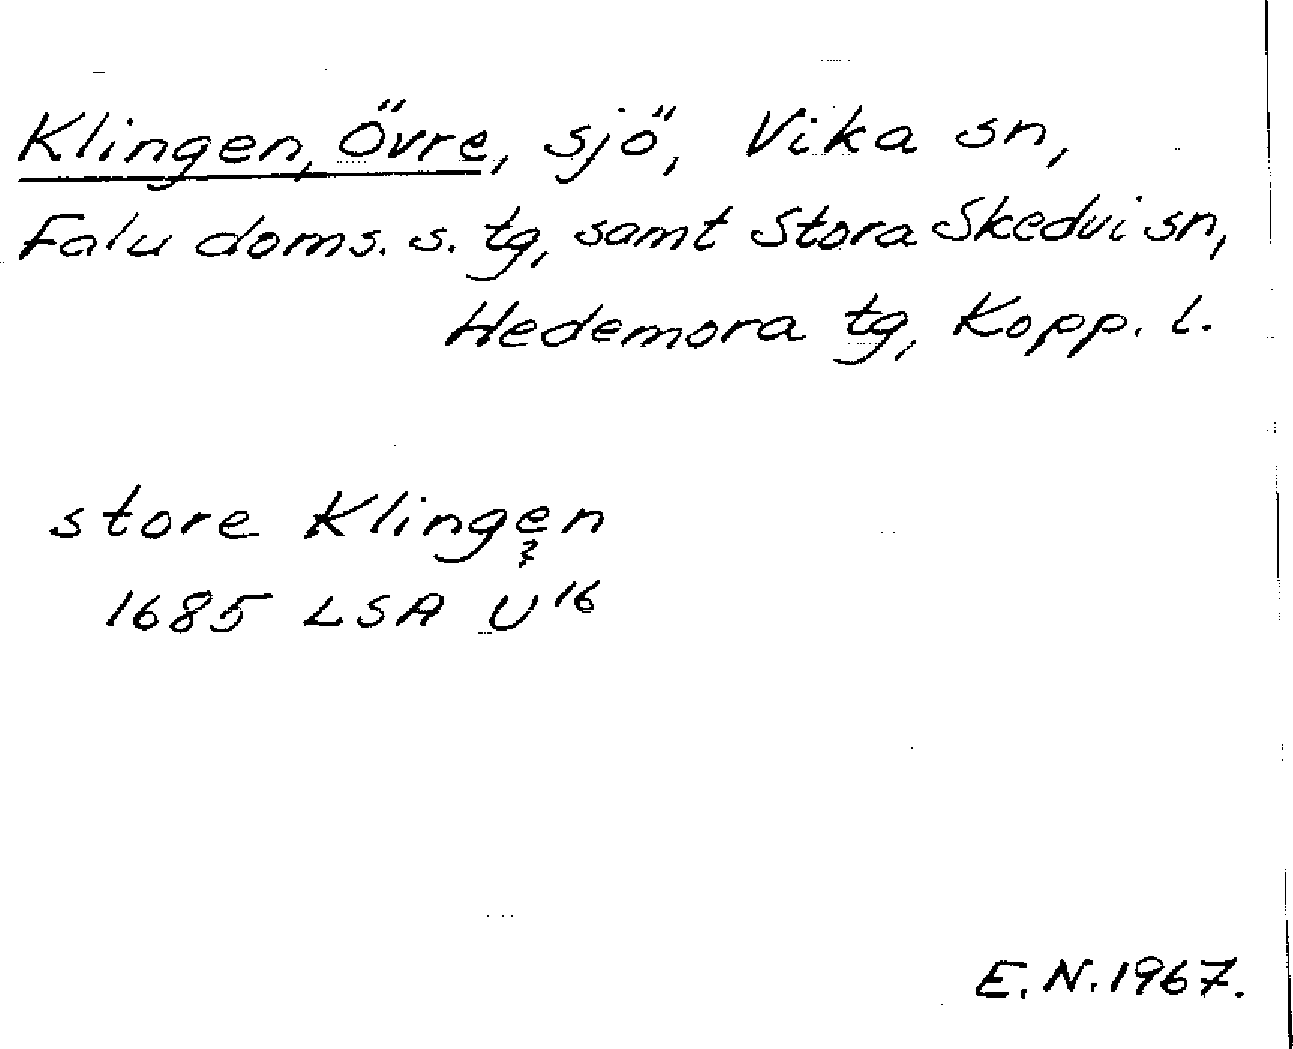 Klingen, Övre, sjö, Vika sn,
Falu doms. s. tg, samt Stora Skedvi sn,
Hedemora tg, Kopp. l.
store Klingen
?
1685 LSA U16
E.N. 1967.